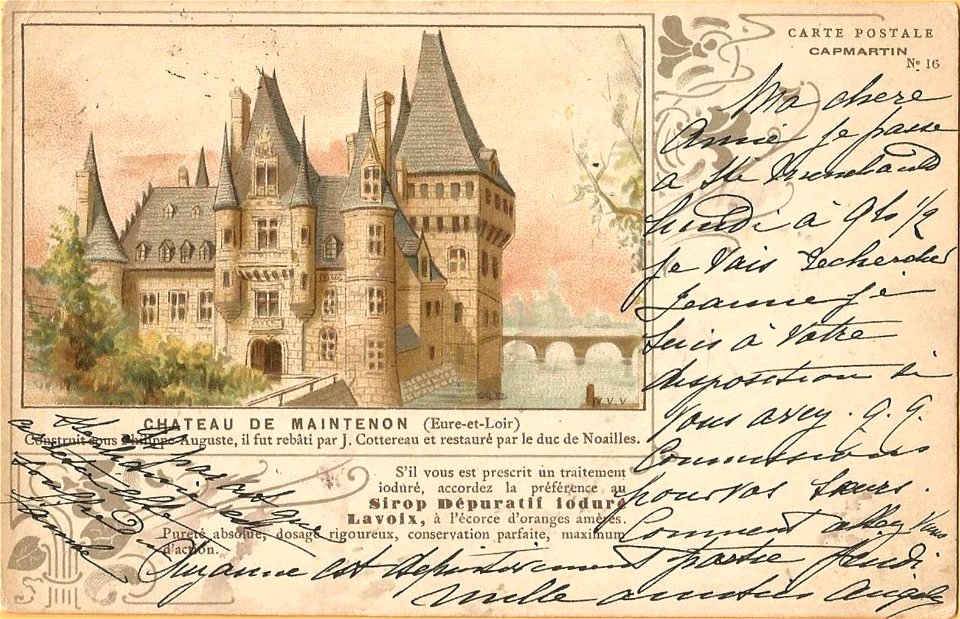 CARTE POSTALE
CAPMARTIN
Nº 16
Ma chere
Amie je passe
a Ste
lundi à 9 h 1/2
je vais rechercher
Jeanne je
suis à votre
disposition si
vous avez q. q.
Commissions
pour vos Sœurs.
Comment allez vous
Suzanne est définitivement partie jeudi
Mille amitiés Angèle
CHATEAU DE MAINTENON (Eure-et-Loir)
Construit sous Philippe-Auguste, il fut rebâti par J. Cottereau et restauré par le duc de Noailles.
S'il vous est prescrit un traitement
ioduré, accordez la préférence au
Sirop Dépuratif ioduré
Lavoix, à l'écorce d'oranges amères.
Pureté absolue, dosage rigoureux, conservation parfaite, maximum
d'action.
V.V.V